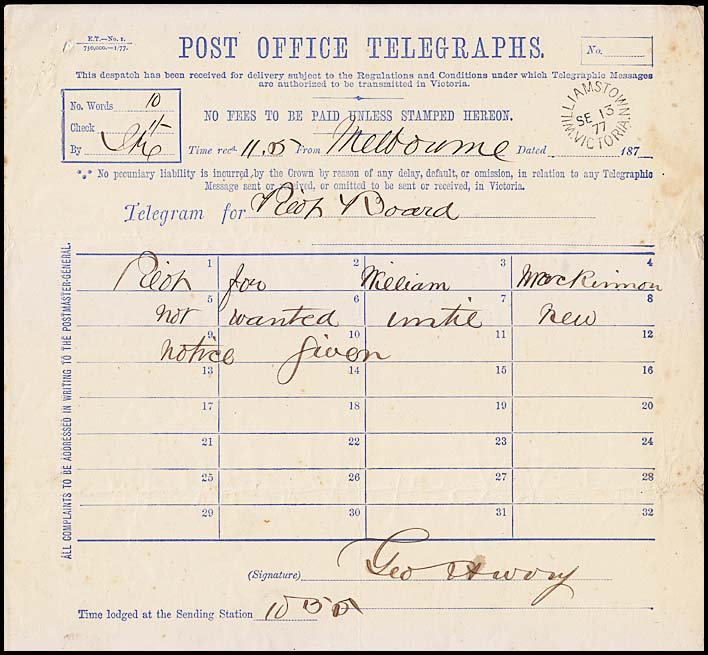 E.T.—No. 1.
750,000.—1/77.
POST OFFICE TELEGRAPHS.
No.
This despatch has been received for delivery subject to the Regulations and Conditions under which Telegraphic Messages
are authorized to be transmitted in Victoria.
No. Words 10
Check
By
NO FEES TO BE PAID UNLESS STAMPED HEREON.
Time recd. 11.5 From Melbourne Dated 187
WILLIAMSTOWN
SE 13
77
VICTORIA
*.* No pecuniary liability is incurred by the Crown by reason of any delay, default, or omission, in relation to any Telegraphic
Message sent or received, or omitted to be sent or received, in Victoria.
Telegram for Pilot Board
1 2 3 4
Pilot for William Mackinnon
5 6 7 8
not wanted until new
9 10 11 12
notice given
13 14 15 16
17 18 19 20
21 22 23 24
25 26 27 28
29 30 31 32
ALL COMPLAINTS TO BE ADDRESSED IN WRITING TO THE POSTMASTER-GENERAL.
(Signature) Geo
Time lodged at the Sending Station 10